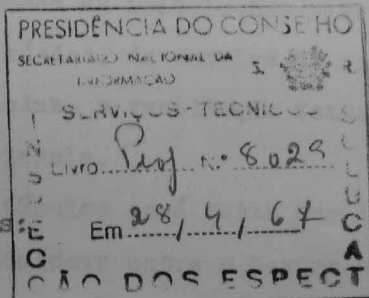 PRESIDÊNCIA DO CONSELHO
SECRETARIADO NACIONAL DA
INFORMAÇÃO
S. R.
SERVIÇOS-TECNICOS
Livro Proj N.º 8029
Em 28/4/67
INSPE
CÇÃO DOS ESPECT